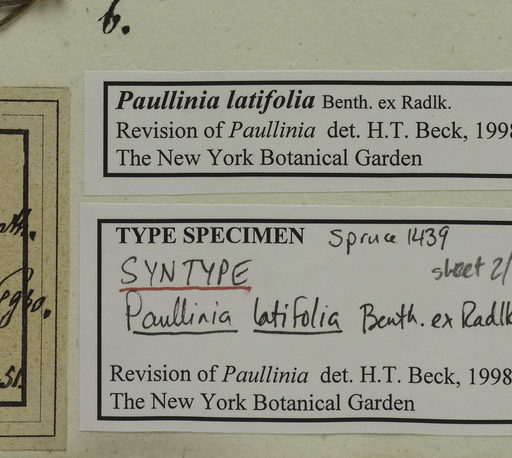 6.
Paullinia latifolia Benth. ex Radlk.
Revision of Paullinia det. H.T. Beck, 1998
The New York Botanical Garden
TYPE SPECIMEN Spruce 1439
SYNTYPE sheet 2/
Paullinia latifolia Benth. ex Radlk
Revision of Paullinia det. H.T. Beck, 1998
The New York Botanical Garden
51.